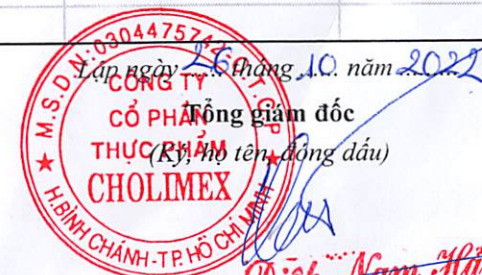 Lập ngày 26 tháng 10 năm 2022
Tổng giám đốc
(Ký, họ tên, đóng dấu)
CÔNG TY
CỔ PHẦN
THỰC PHẨM
CHOLIMEX
H.BÌNH CHÁNH-T.P. HỒ CHÍ MINH
Nam